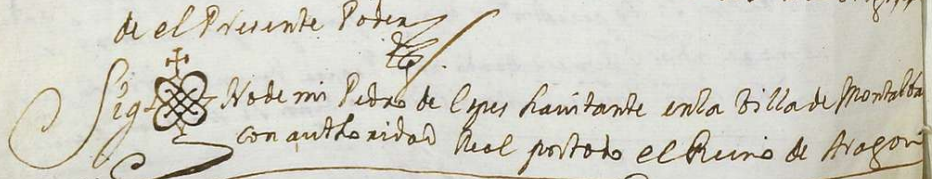 de el Presente Poder
Sig No de mi Pedro de Lopes havitante en la Villa de Montalban
con authoridad Real por todo el Reino de Aragon